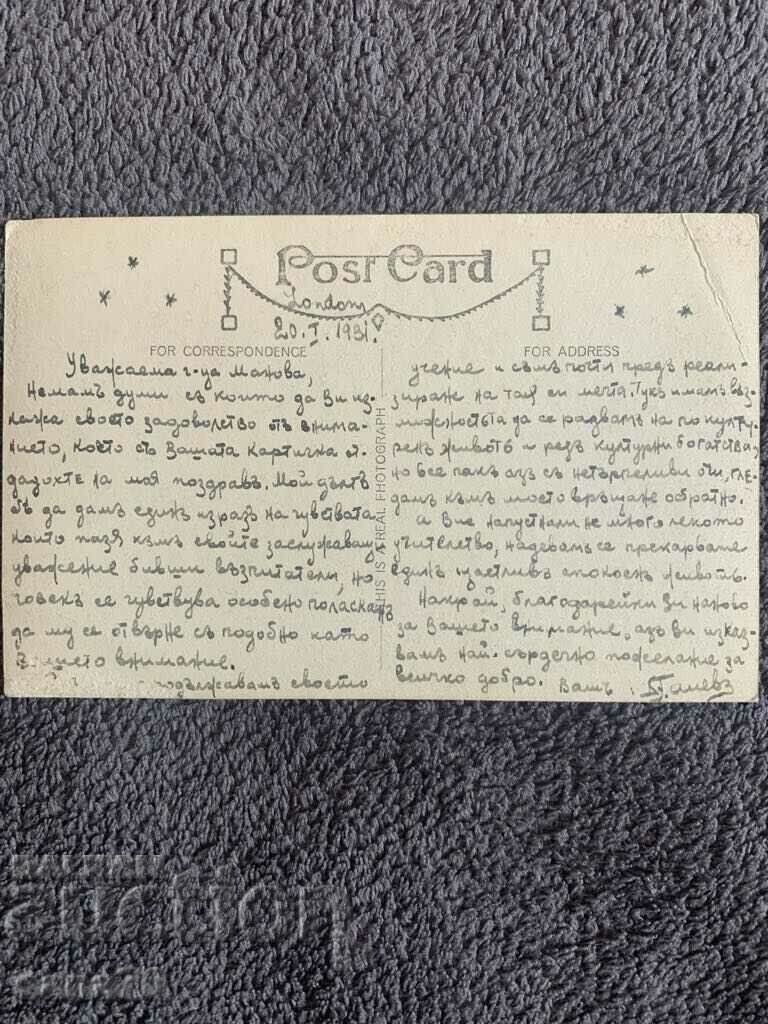 Post Card
London
20.I.1931.
FOR CORRESPONDENCE
Уважаема г-ца Манова,
Немамъ думи съ които да Ви из-
кажа своето задоволство отъ внима-
нието, което съ Вашата картичка от-
дадохте на моя поздравъ. Мой дългъ
бѣ да дамъ единъ изразъ на чувствата
които пазя къмъ своите заслужаващи
уважение бивши възпитатели, но
човекъ се чувствува особено поласканъ
да му се отвърне съ подобно като
Вашето внимание.
продължавамъ своето
THIS IS A REAL PHOTOGRAPH
FOR ADDRESS
учение и съмъ почти предъ реали-
зиране на тая си мечта. Тукъ имамъ въз-
можностьта да се радвамъ на по култу-
ренъ животъ и редъ културни богатства,
но все пакъ азъ съ нетърпеливи очи, гле-
дамъ къмъ моето връщане обратно.
а Вие напуснали не много лекото
учителство, надевамъ се прекарвате
единъ щастливъ спокоенъ животъ.
Накрай, благодарейки Ви наново
за Вашето внимание, азъ ви изказ-
вамъ най-сърдечно пожелание за
всичко добро. Вашъ
auction